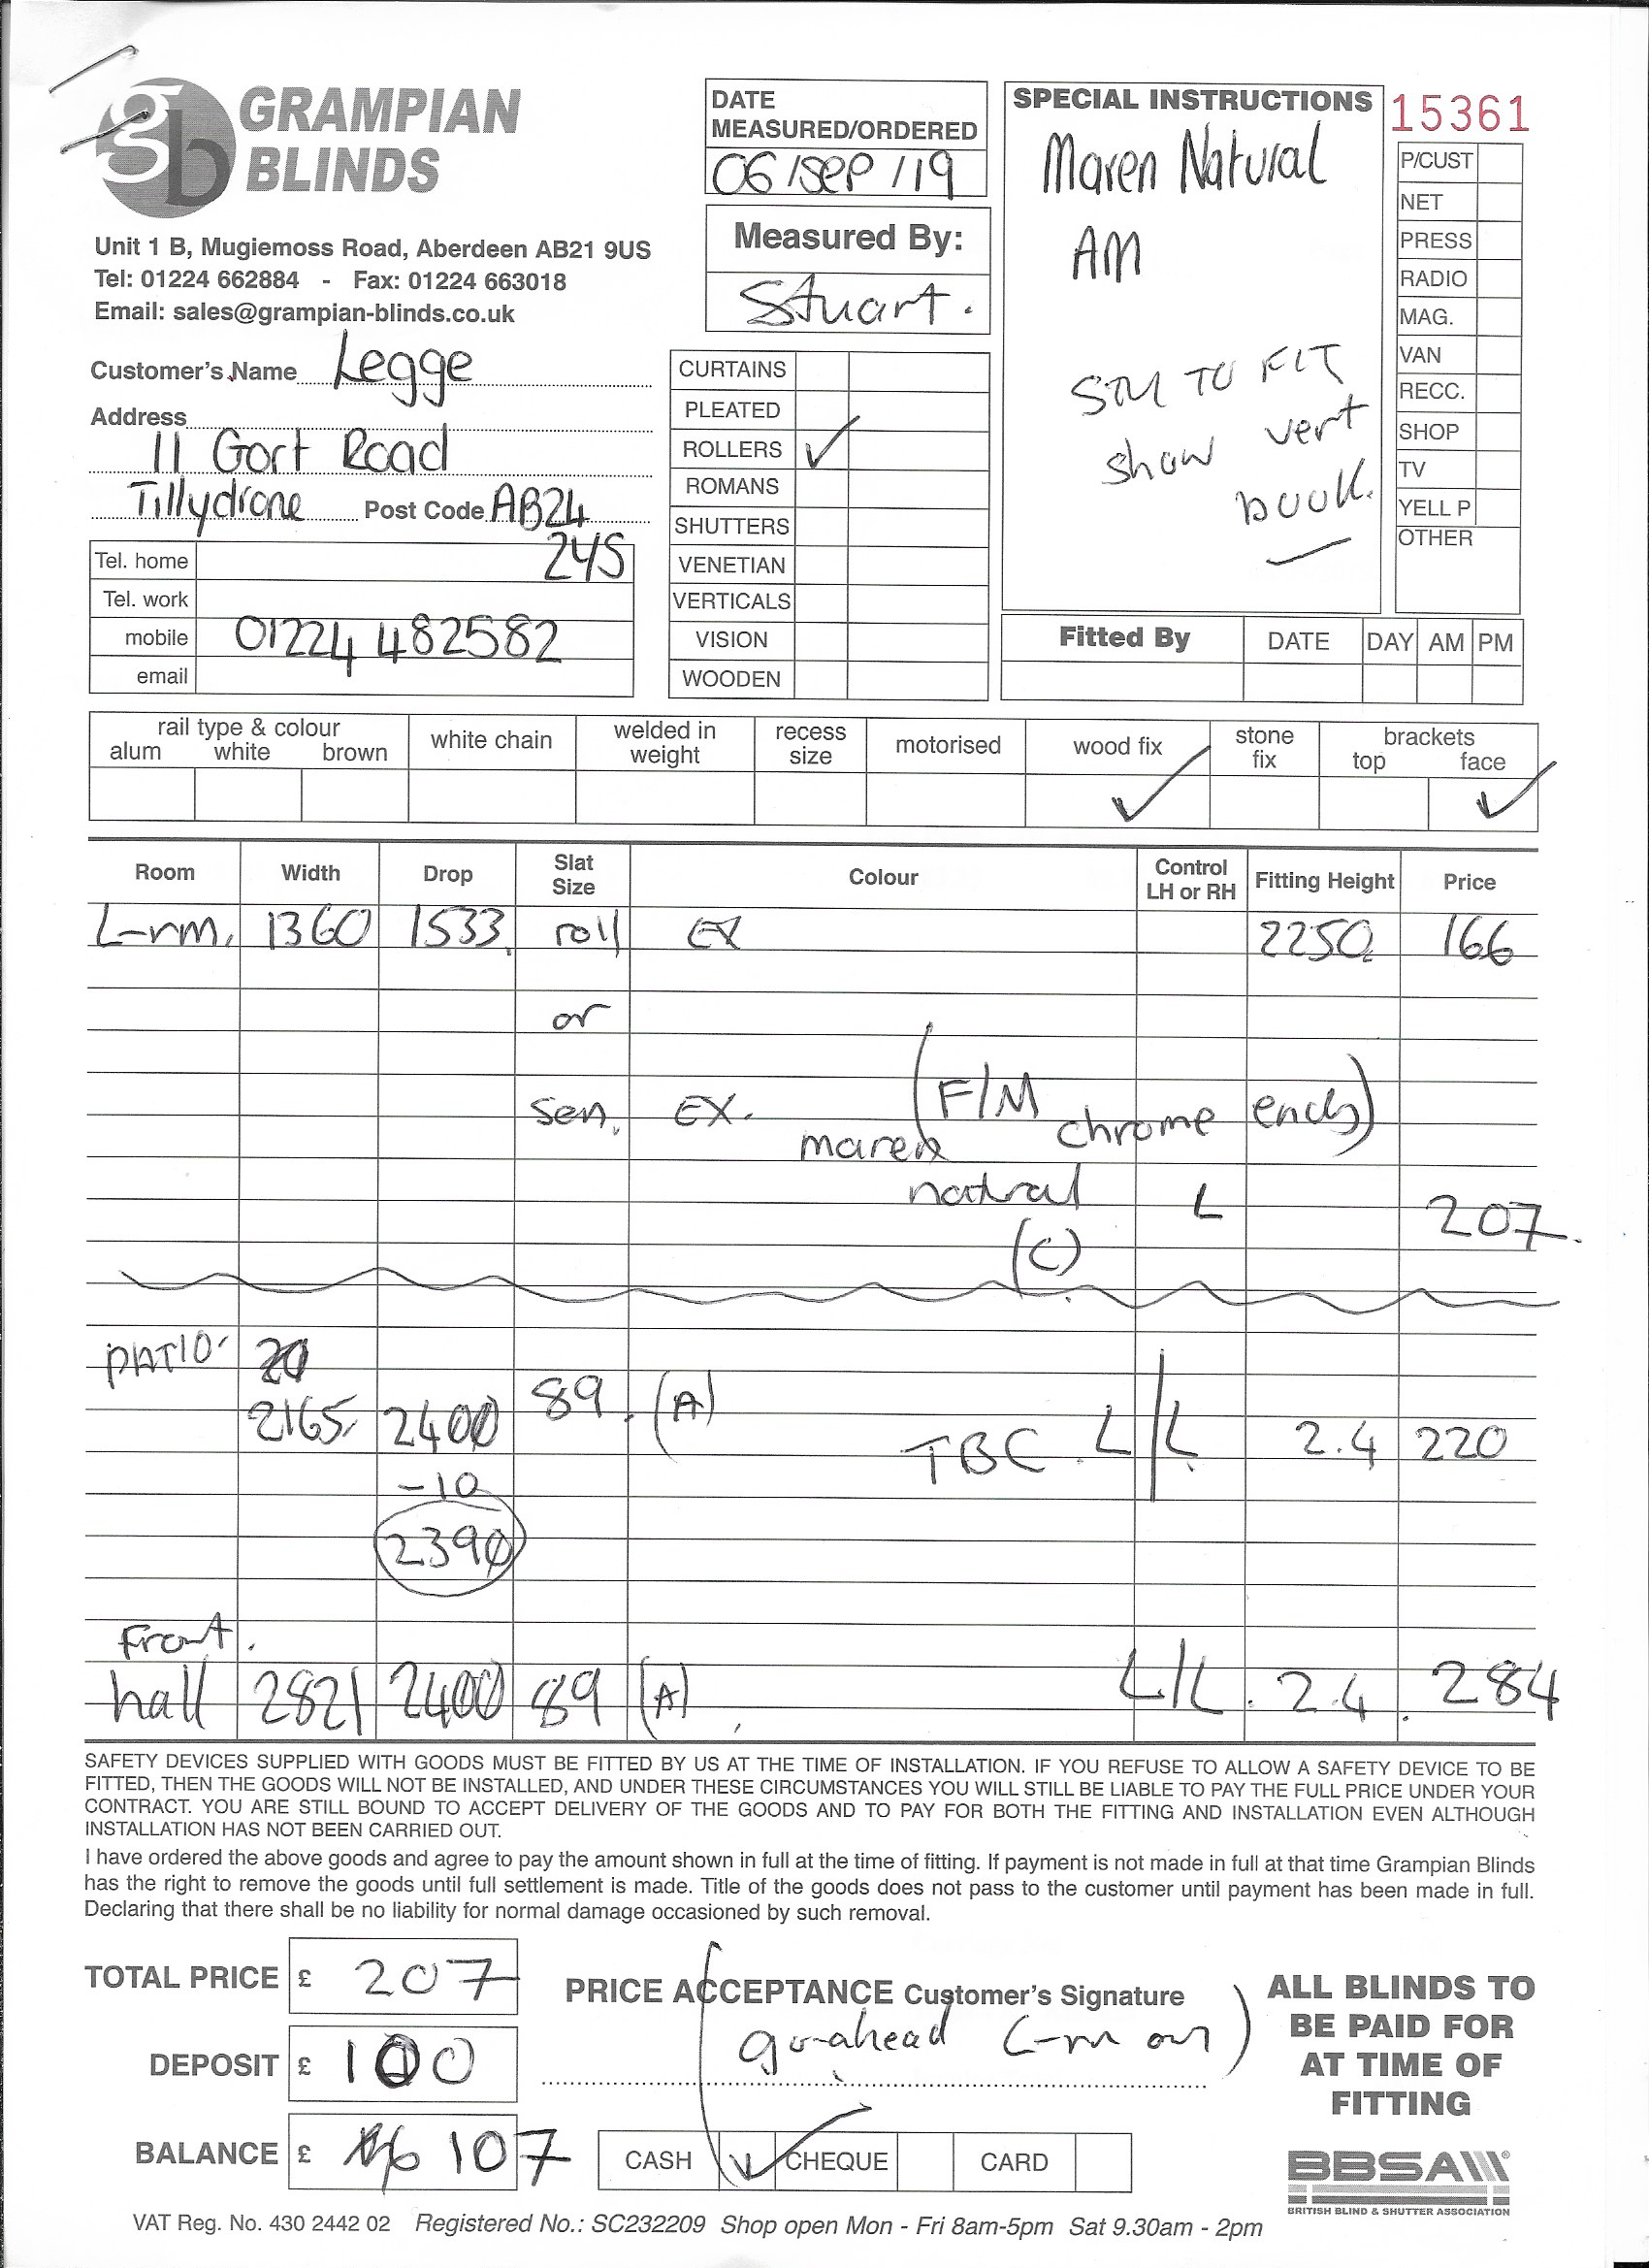 GRAMPIAN
BLINDS
Unit 1 B, Mugiemoss Road, Aberdeen AB21 9US
Tel: 01224 662884 - Fax: 01224 663018
Email: sales@grampian-blinds.co.uk
DATE
MEASURED/ORDERED
06/SEP/19
Measured By:
Stuart.
SPECIAL INSTRUCTIONS
Maren Natural
AM
TO FIT
show vert
book.
15361
P/CUST
NET
PRESS
RADIO
MAG.
VAN
RECC.
SHOP
TV
YELL P
OTHER
Customer's Name Legge
Address
11 Gort Road
Tillydrone Post Code AB24
2YS
Tel. home
Tel. work
mobile 01224 482582
email
CURTAINS
PLEATED
ROLLERS ✓
ROMANS
SHUTTERS
VENETIAN
VERTICALS
VISION
WOODEN
Fitted By DATE DAY AM PM
rail type & colour
alum white brown
white chain
welded in
weight
recess
size
motorised
wood fix ✓
stone
fix
brackets
top face ✓
Room Width Drop Slat Size Colour Control LH or RH Fitting Height Price
L-rm. 1360 1533 roll EX 2250 166
or
sen. EX. (F/M chrome ends)
maren
natural L 207.
(C)
PATIO.
2165 2400 89. (A) TBC L/L 2.4 220
-10
2390
Front.
hall 2821 2400 89 (A) L/L. 2.4. 284
SAFETY DEVICES SUPPLIED WITH GOODS MUST BE FITTED BY US AT THE TIME OF INSTALLATION. IF YOU REFUSE TO ALLOW A SAFETY DEVICE TO BE
FITTED, THEN THE GOODS WILL NOT BE INSTALLED, AND UNDER THESE CIRCUMSTANCES YOU WILL STILL BE LIABLE TO PAY THE FULL PRICE UNDER YOUR
CONTRACT. YOU ARE STILL BOUND TO ACCEPT DELIVERY OF THE GOODS AND TO PAY FOR BOTH THE FITTING AND INSTALLATION EVEN ALTHOUGH
INSTALLATION HAS NOT BEEN CARRIED OUT.
I have ordered the above goods and agree to pay the amount shown in full at the time of fitting. If payment is not made in full at that time Grampian Blinds
has the right to remove the goods until full settlement is made. Title of the goods does not pass to the customer until payment has been made in full.
Declaring that there shall be no liability for normal damage occasioned by such removal.
TOTAL PRICE £ 207
DEPOSIT £ 100
BALANCE £ 107
PRICE ACCEPTANCE Customer's Signature
(go-ahead L-rm)
CASH ✓ CHEQUE CARD
ALL BLINDS TO
BE PAID FOR
AT TIME OF
FITTING
BBSA
BRITISH BLIND & SHUTTER ASSOCIATION
VAT Reg. No. 430 2442 02 Registered No.: SC232209 Shop open Mon - Fri 8am-5pm Sat 9.30am - 2pm